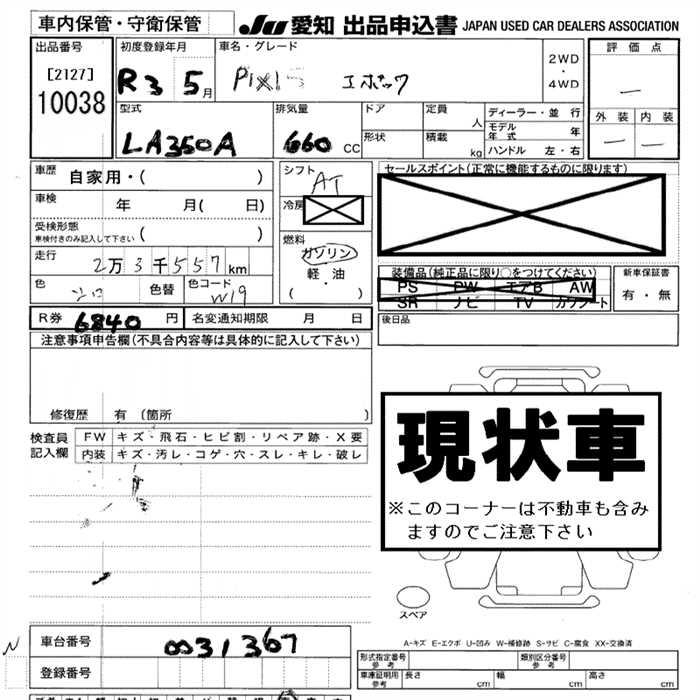 車内保管・守衛保管
JU 愛知 出品申込書 JAPAN USED CAR DEALERS ASSOCIATION
出品番号 初度登録年月 車名・グレード 評価点
[2127] R3 5月 PIXIS エポック 2WD・4WD
10038
型式 排気量 ドア 定員 人 ディーラー・並行 外装 内装
LA350A 660 CC 形状 積載 kg モデル年式 年
ハンドル 左・右
車歴 自家用・( ) シフト AT セールスポイント(正常に機能するものに限ります)
車検 年 月( 日) 冷房
受検形態 ( )
車検付きのみ記入して下さい
燃料 ガソリン
走行 2万3千557km 軽・油
(・)
装備品(純正品に限り〇をつけてください) 新車保証書
PS PW エアB AW 有・無
SR ナビ TV カワシート
色 シロ 色替 色コード W19
R券 6840円 名変通知期限 月 日 後日品
注意事項申告欄(不具合内容等は具体的に記入して下さい)
修復歴 有 (箇所 )
検査員記入欄 FW キズ・飛石・ヒビ割・リペア跡・X要
内装 キズ・汚レ・コゲ・穴・スレ・キレ・破レ
現状車
※このコーナーは不動車も含み
ますのでご注意下さい
スペア
A-キズ E-エクボ U-凹み W-補修跡 S-サビ C-腐食 XX-交換済
車台番号 0031367
登録番号
形式指定番号 参考 類別区分番号 参考
車庫証明用 参考 長さ cm 幅 cm 高さ cm